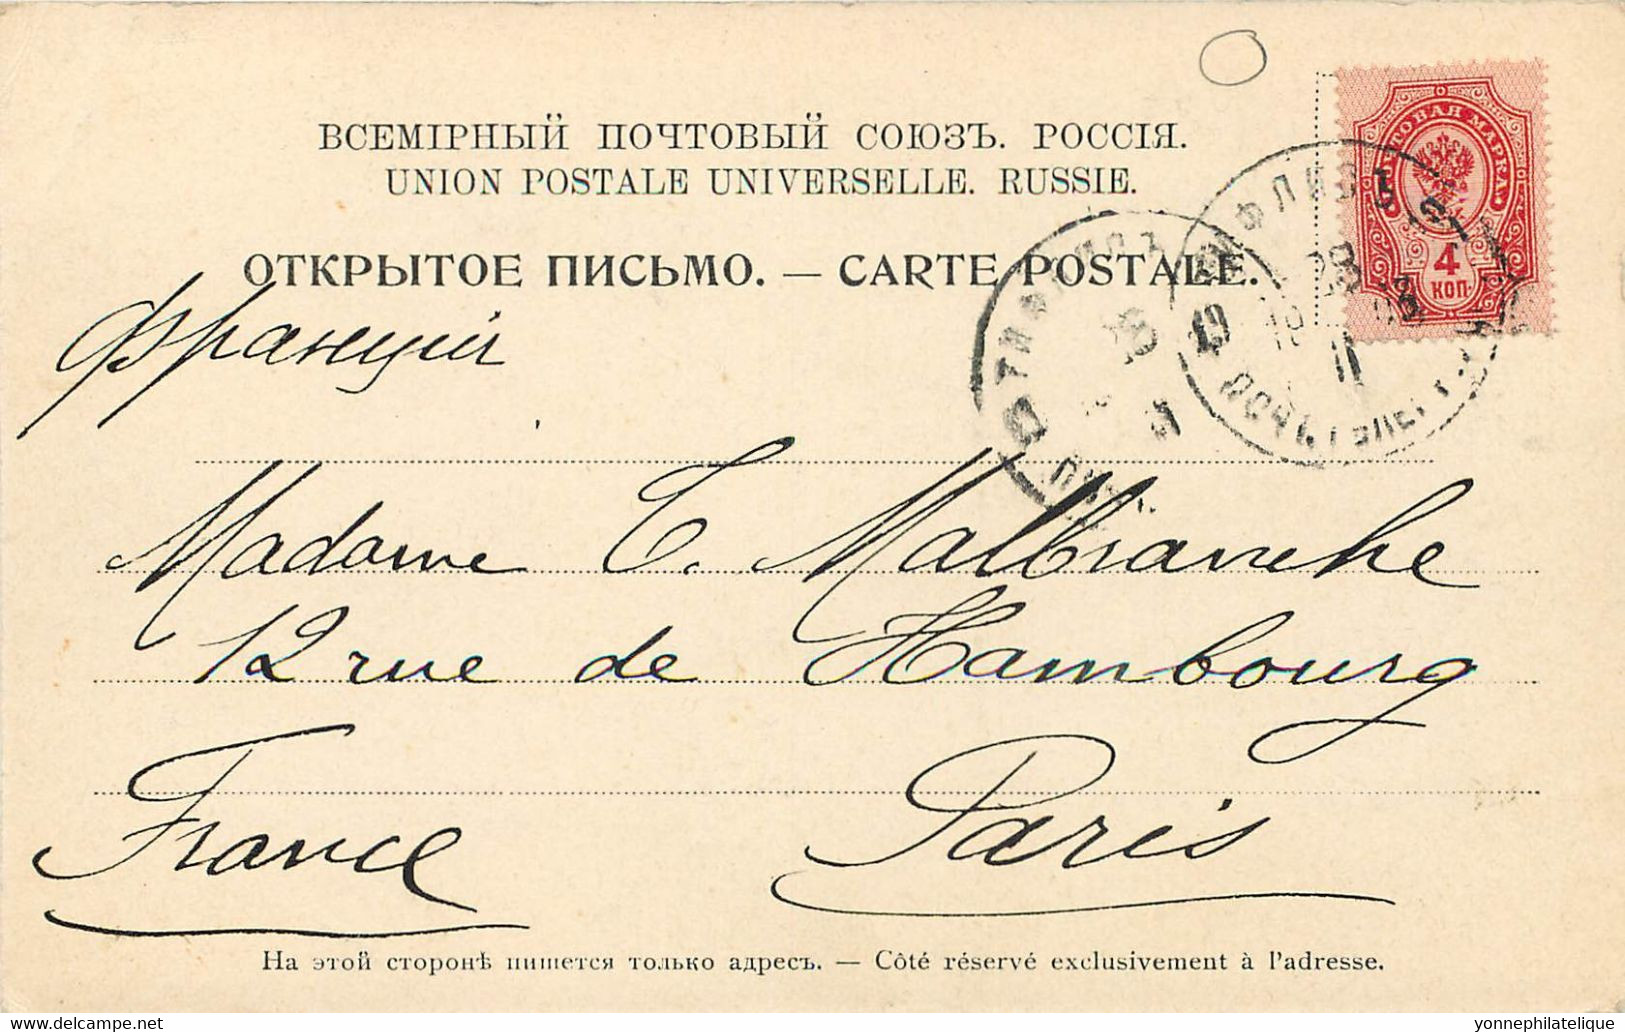 ВСЕМІРНЫЙ ПОЧТОВЫЙ СОЮЗЪ. РОССІЯ.
UNION POSTALE UNIVERSELLE. RUSSIE.
ОТКРЫТОЕ ПИСЬМО. — CARTE POSTALE.
ПОЧТОВАЯ МАРКА
4
КОП.
ТИФЛИСЪ
ТИФЛИСЪ
Франція
Madame C. Malbranche
12 rue de Hambourg
France Paris
На этой сторонѣ пишется только адресъ. — Côté réservé exclusivement à l'adresse.
www.delcampe.net
yonnephilatelique